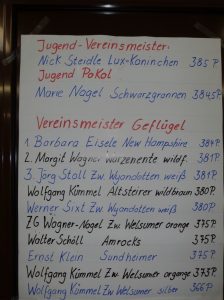 Jugend-Vereinsmeister:
Nick Steidle Lux-Kaninchen 385 P.
Jugend Pokal
Marie Nagel Schwarzgrannen 384,5 P.
Vereinsmeister Geflügel
1. Barbara Eisele New Hampshire 384 P.
2. Margit Wagner Warzenente wildf. 381 P.
3. Jörg Stoll Zw. Wyandotten weiß 381 P.
Wolfgang Kümmel Altsteirer wildbraun 380 P.
Werner Sixt Zw. Wyandotten weiß 380 P.
ZG Wagner-Nagel Zw. Welsumer orange 375 P.
Walter Schöll Amrocks 375 P.
Ernst Klein Sundheimer 375 P.
Wolfgang Kümmel Zw. Welsumer orange 373 P.
Wolfgang Kümmel Zw. Welsumer silber 366 P.